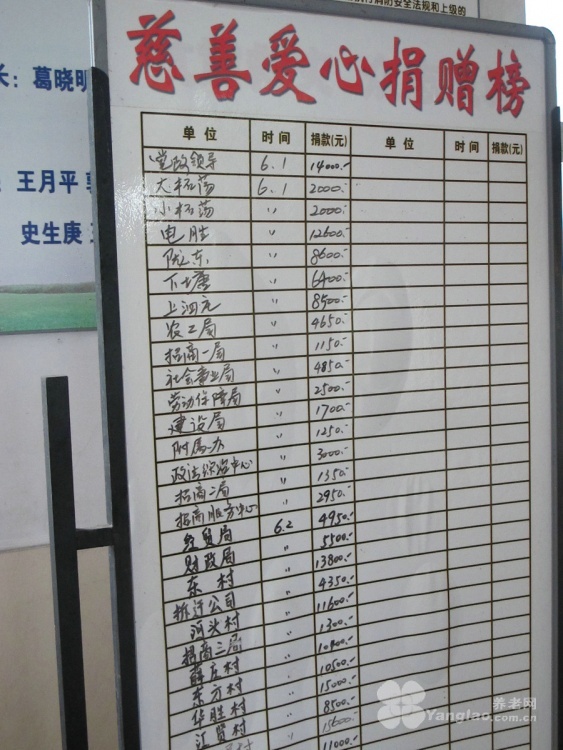 防安全法规和上级的
长：葛晓明
王月平
史生庚
慈善爱心捐赠榜
单位 时间 捐款(元) 单位 时间 捐款(元)
党政领导 6.1 14000.-
大标荡 6.1 2000.-
小标荡 〃 2000.-
电胜 〃 12600.-
陇东 〃 8600.-
下塘 〃 6400.-
上泗元 〃 8500.-
农工局 〃 4650.-
招商一局 〃 1150.-
社会事业局 〃 4850.-
劳动保障局 〃 2500.-
建设局 〃 1700.-
附属办 〃 1250.-
政法综治中心 〃 3000.-
招商二局 〃 1350.-
招商服务中心 〃 2950.-
经贸局 6.2 4950.-
财政局 〃 5500.-
东村 〃 13800.-
拆迁公司 〃 4350.-
河头村 〃 11600.-
招商三局 〃 1300.-
薛庄村 〃 10400.-
东方村 〃 10500.-
华胜村 〃 15000.-
江贤村 〃 8500.-
村 15600.-
11000.-
养老网
Yanglao.com.cn